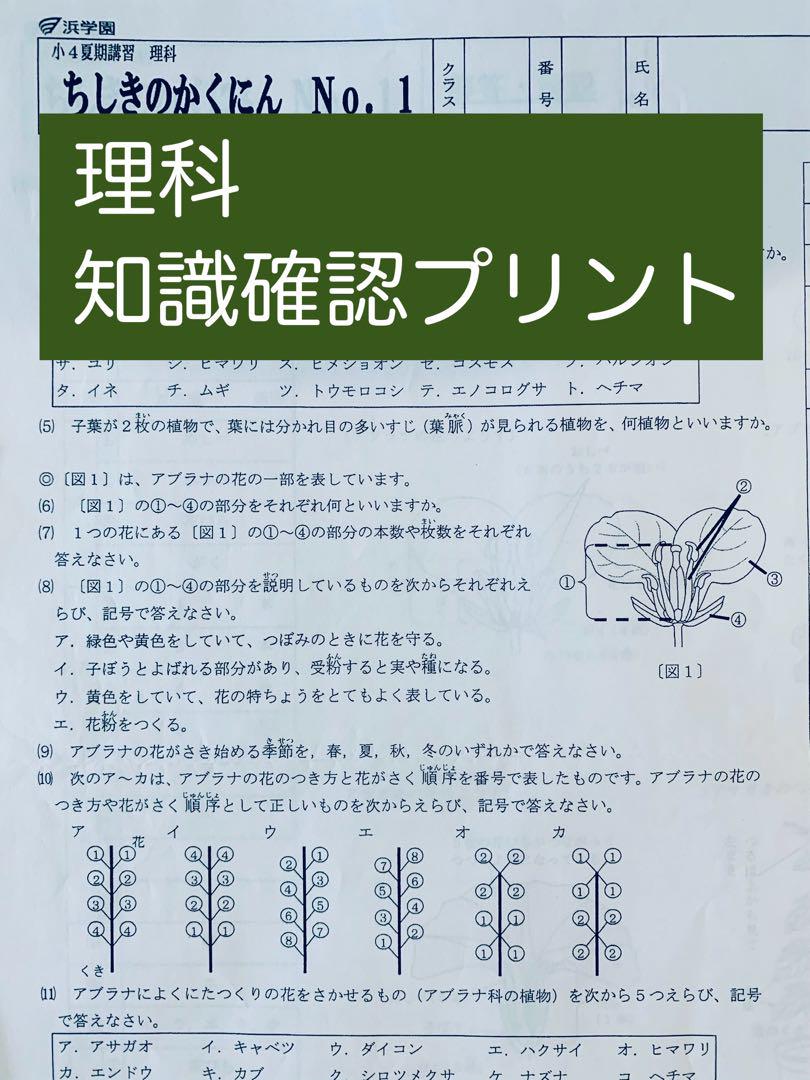 浜学園
小4夏期講習 理科
ちしきのかくにん No.1
クラス
番号
氏名
理科
知識確認プリント
か。
サ．ユリ シ．ヒマワリ ス．ヒメジョオン セ．コスモス ソ．ハルジオン
タ．イネ チ．ムギ ツ．トウモロコシ テ．エノコログサ ト．ヘチマ
⑸ 子葉が2枚の植物で、葉には分かれ目の多いすじ（葉脈）が見られる植物を、何植物といいますか。
◎〔図1〕は、アブラナの花の一部を表しています。
⑹ 〔図1〕の①～④の部分をそれぞれ何といいますか。
⑺ 1つの花にある〔図1〕の①～④の部分の本数や枚数をそれぞれ
答えなさい。
⑻ 〔図1〕の①～④の部分を説明しているものを次からそれぞれえ
らび、記号で答えなさい。
ア．緑色や黄色をしていて、つぼみのときに花を守る。
イ．子ぼうとよばれる部分があり、受粉すると実や種になる。
ウ．黄色をしていて、花の特ちょうをとてもよく表している。
エ．花粉をつくる。
① ② ③ ④
〔図1〕
⑼ アブラナの花がさき始める季節を，春，夏，秋，冬のいずれかで答えなさい。
⑽ 次のア～カは、アブラナの花のつき方と花がさく順序を番号で表したものです。アブラナの花の
つき方や花がさく順序として正しいものを次からえらび、記号で答えなさい。
ア イ ウ エ オ カ
花
①① ④④ ②① ⑦⑧ ②② ①①
②② ③③ ④③ ⑤⑥ ②② ①①
③③ ②② ⑥⑤ ③④ ①① ②②
④④ ①① ⑧⑦ ①② ①① ②②
くき
⑾ アブラナによくにたつくりの花をさかせるもの（アブラナ科の植物）を次から5つえらび、記号
で答えなさい。
ア．アサガオ イ．キャベツ ウ．ダイコン エ．ハクサイ オ．ヒマワリ
カ．エンドウ キ．カブ ク．シロツメクサ ケ．ナズナ コ．ヘチマ